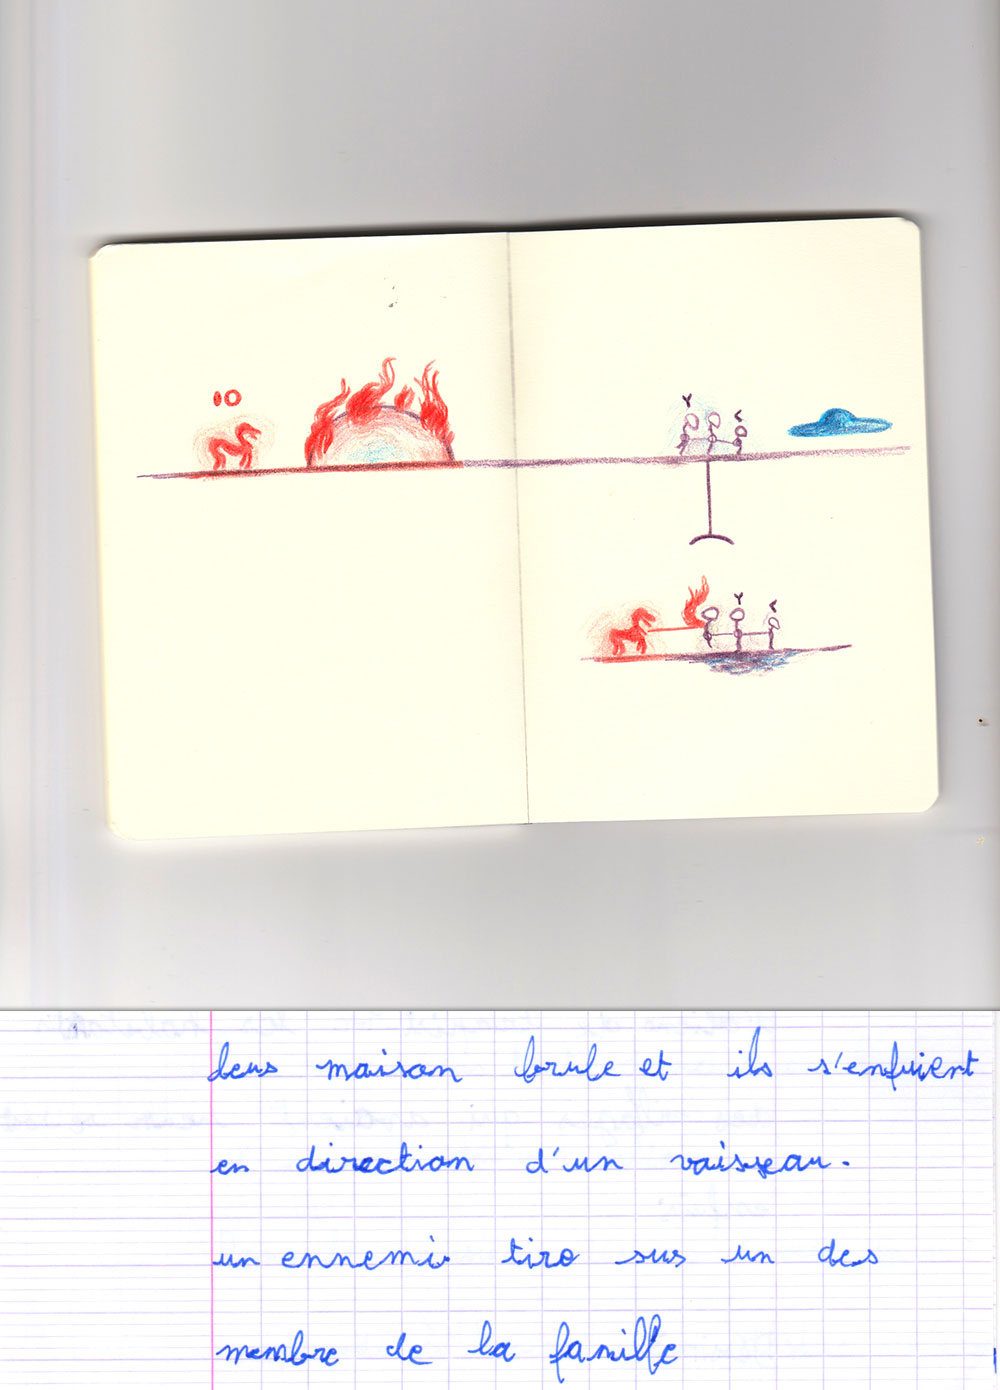 10
leurs maison brule et ils s'enfuient
en direction d'un vaisseau.
un ennemi tire sus un des
membre de la famille